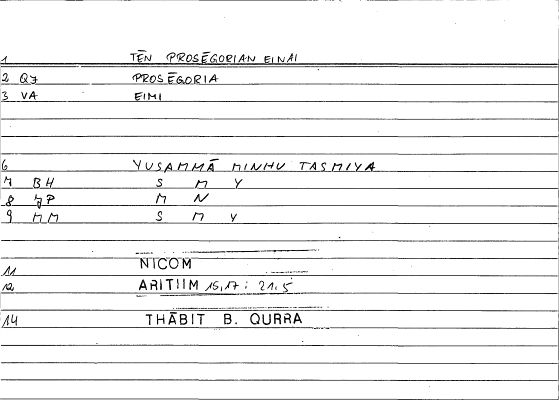 1 TĒN PROSĒGORIAN EINAI
2 QJ PROSĒGORIA
3 VA EIMI
6 YUSAMMĀ MINHU TASMIYA
7 BH S M Y
8 JP M N
9 MM S M Y
11 NICOM
12 ARITIIM 15,17 : 21.5
14 THĀBIT B. QURRA